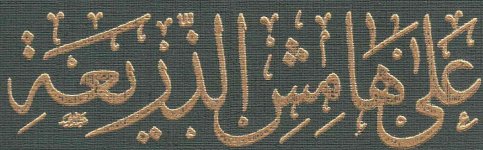 على هامش الذريعة